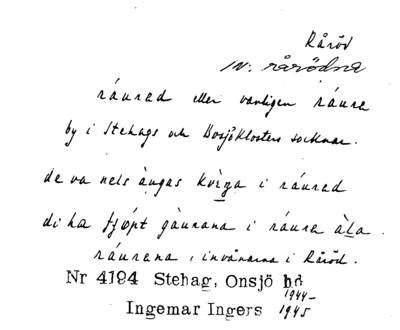 Råröd
IV: rårödna
ráurad eller vanligen ráura
by i Stehags och Bosjöklosters socknar.
de va nels àngas kvìga i ráurad
di ha fjǿpt gàurana i ráura àla.
ráurana, invånarna i Råröd.
Nr 4194 Stehag, Onsjö hd
1944-
Ingemar Ingers 1945